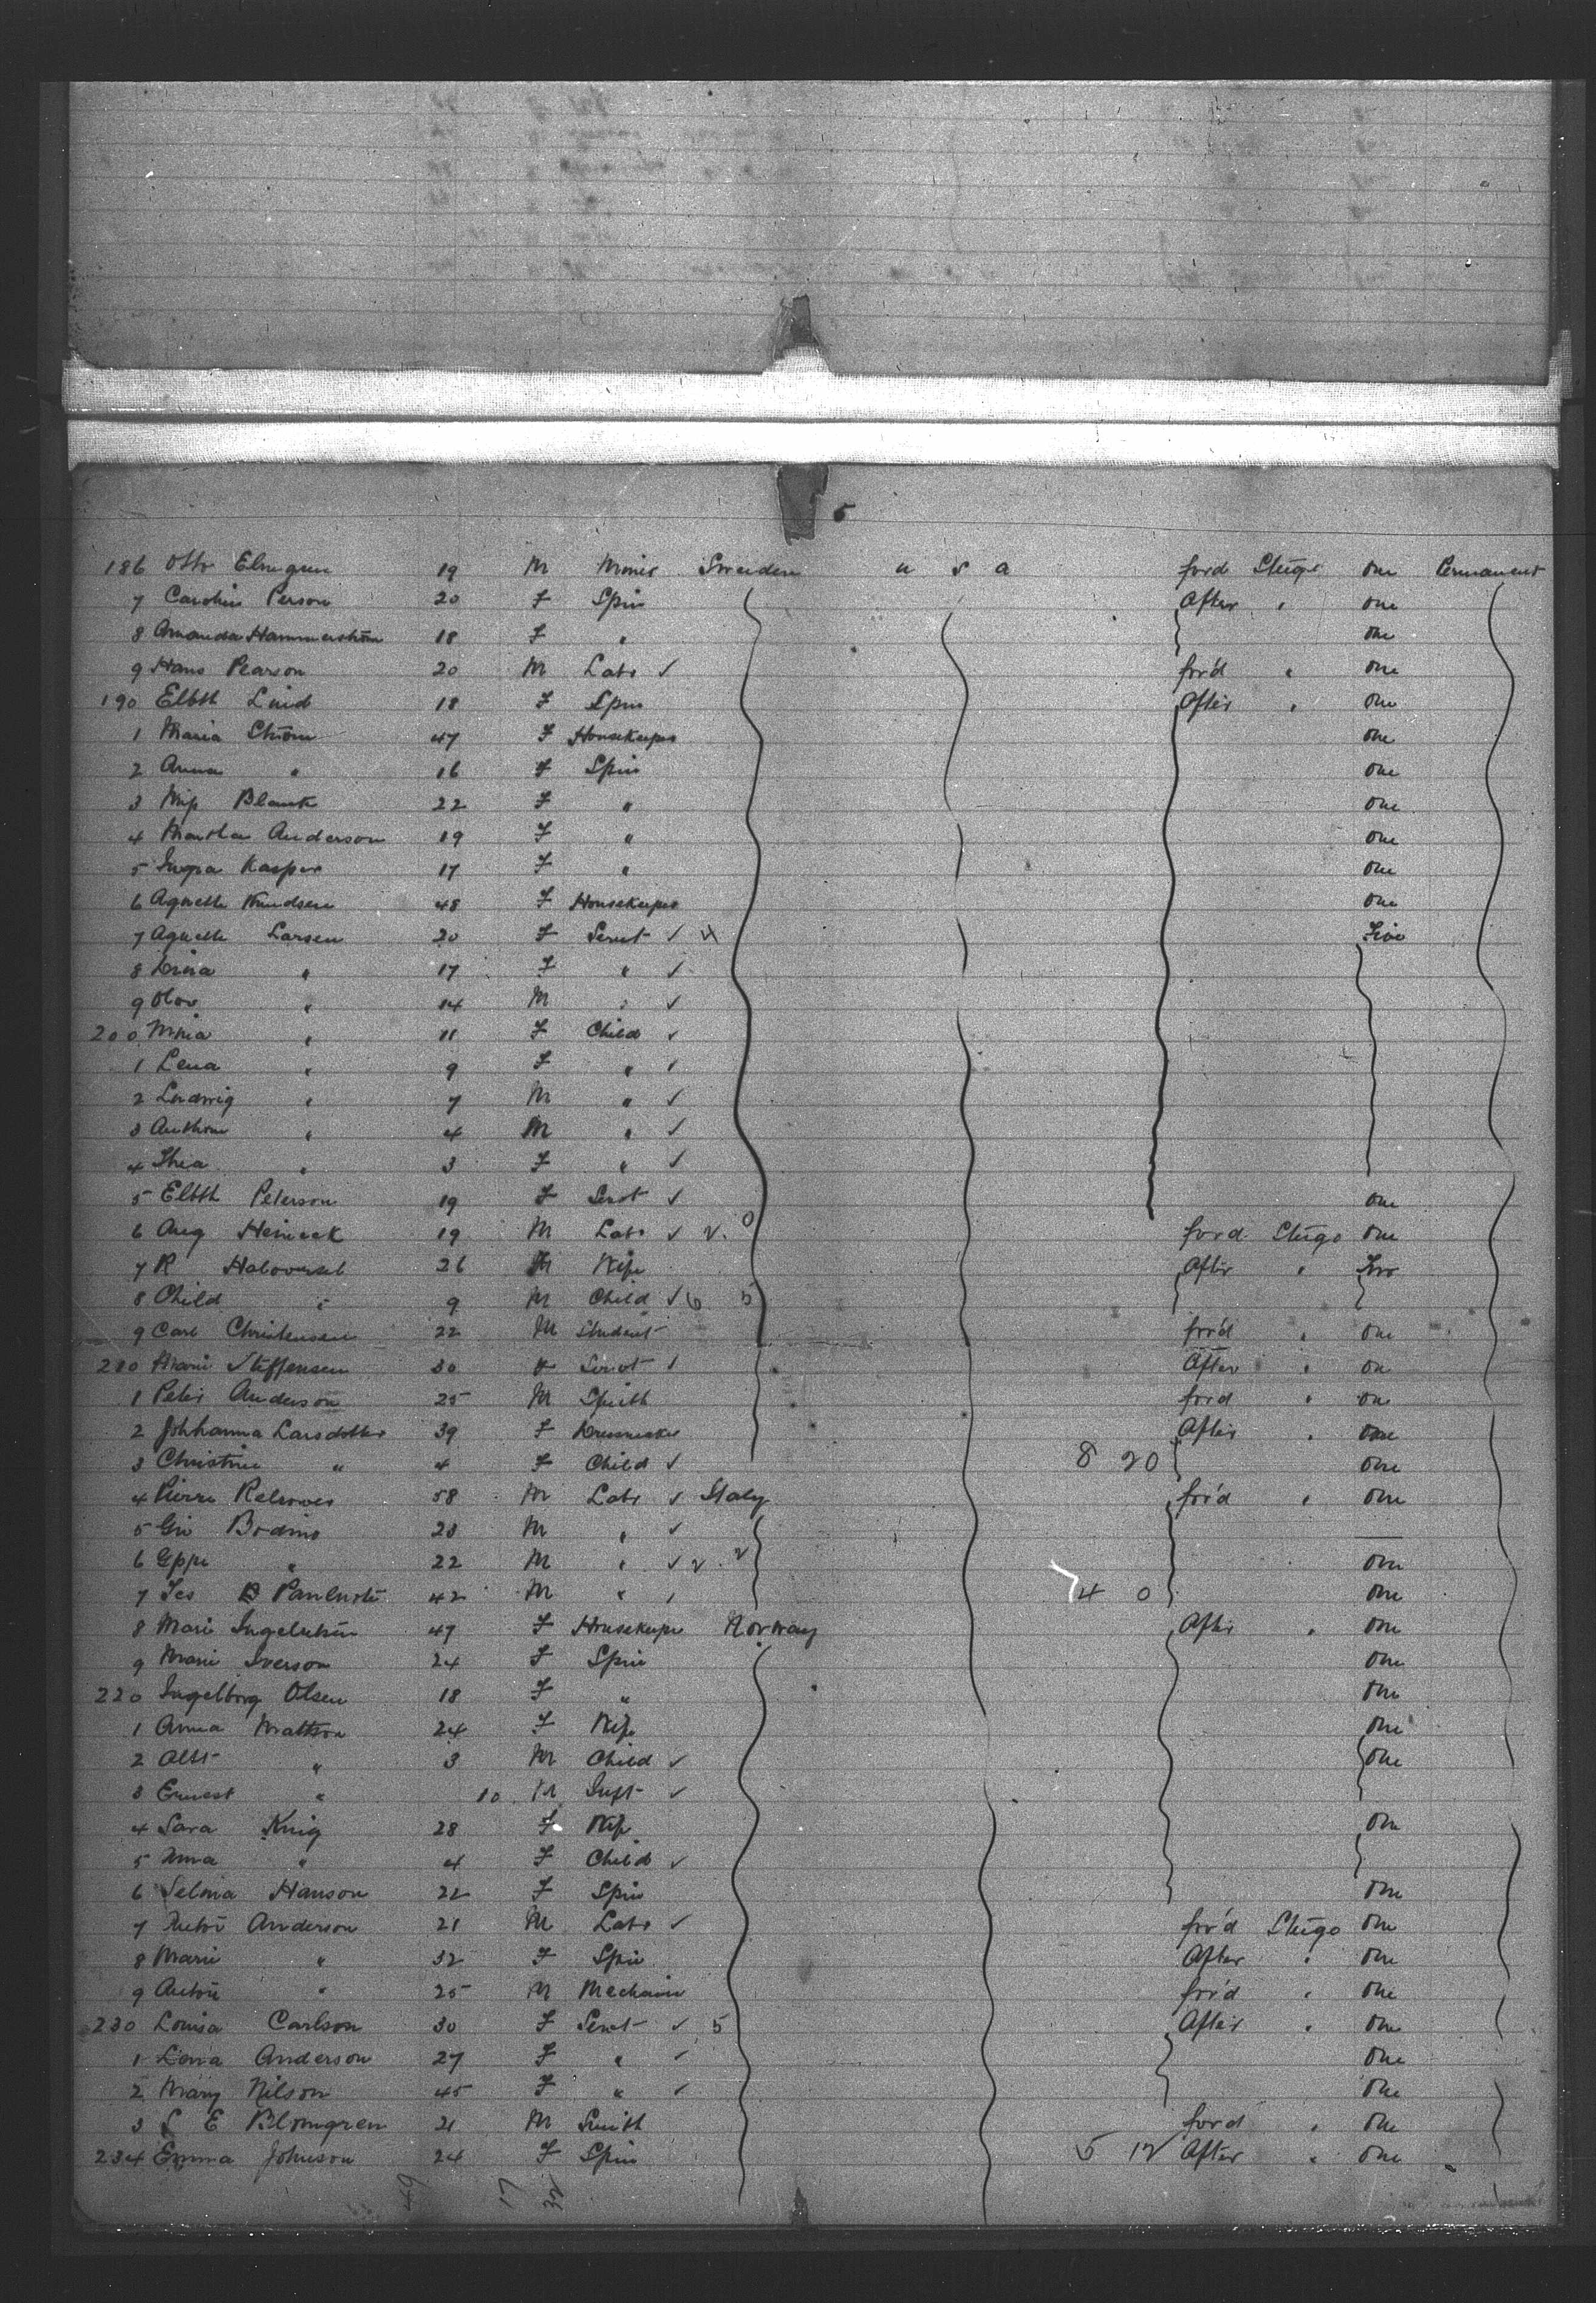 5
186 Otto Elmgren 19 M Miner Sweden U S A ford Stuge One Permanent
7 Carolin Person 20 F Spin After " One
8 Amanda Hammerström 18 F " One
9 Hans Pearson 20 M Labr ✓ for'd " One
190 Elbth Lind 18 F Spin After " One
1 Maria Ström 47 F Housekeeper One
2 Anna " 16 F Spin One
3 Blank 22 F " One
4 Martha Anderson 19 F " One
5 Inga Kasper 17 F " One
6 Agneth Knudsen 48 F Housekeeper One
7 Agneth Larsen 20 F Servt ✓ 4 Five
8 " 17 F " ✓
9 Olov " 14 M " ✓
200 " 11 F Child ✓
1 Lena " 9 F " ✓
2 Ludwig " 7 M " ✓
3 Anthon " 4 M " ✓
4 Thea " 3 F " ✓
5 Elbth Peterson 19 F Servt ✓ One
6 Aug Heineck 19 M Labr ✓ 2. 0 ford Stuge One
7 R 26 Wife After " Two
8 Child " 9 M Child ✓ 6 5
9 Carl Christensen 22 M Student for'd " One
210 Marie Steffensen 30 F Servt ✓ After " One
1 Peter Anderson 25 M Smith ford " One
2 Johhanna Larsdotter 39 F Dressmaker After " One
3 Christine " 4 F Child ✓ 8 20 One
4 Pierre 58 M Labr ✓ Italy for'd " One
5 Gio Bodino 23 M " ✓ —
6 Gppe " 22 M " ✓ 2. 2 One
7 42 M " ✓ 4 0 One
8 Marie Ingelström 47 F Housekeeper Norway After " One
9 Marie Iverson 24 F Spin One
220 Ingelborg Olsen 18 F " One
1 Anna Mattson 24 F Wife One
2 Albt " 3 M Child ✓ One
3 Ernest " 10 M Inft ✓
4 Sara King 28 F Wife One
5 Anna " 4 F Child ✓
6 Selma Hanson 22 F Spin One
7 Anderson 21 M Labr ✓ for'd Stuge One
8 Marie " 32 F Spin After " One
9 Anton " 25 M Mechanic for'd " One
230 Louisa Carlson 30 F Servt ✓ 5 After " One
1 Lena Anderson 27 F " ✓ One
2 Mary Nilson 45 F " ✓ One
3 L E Blomgren 21 M Smith ford " One
234 Emma Johnson 24 F Spin 5 12 After " One
49 17 32